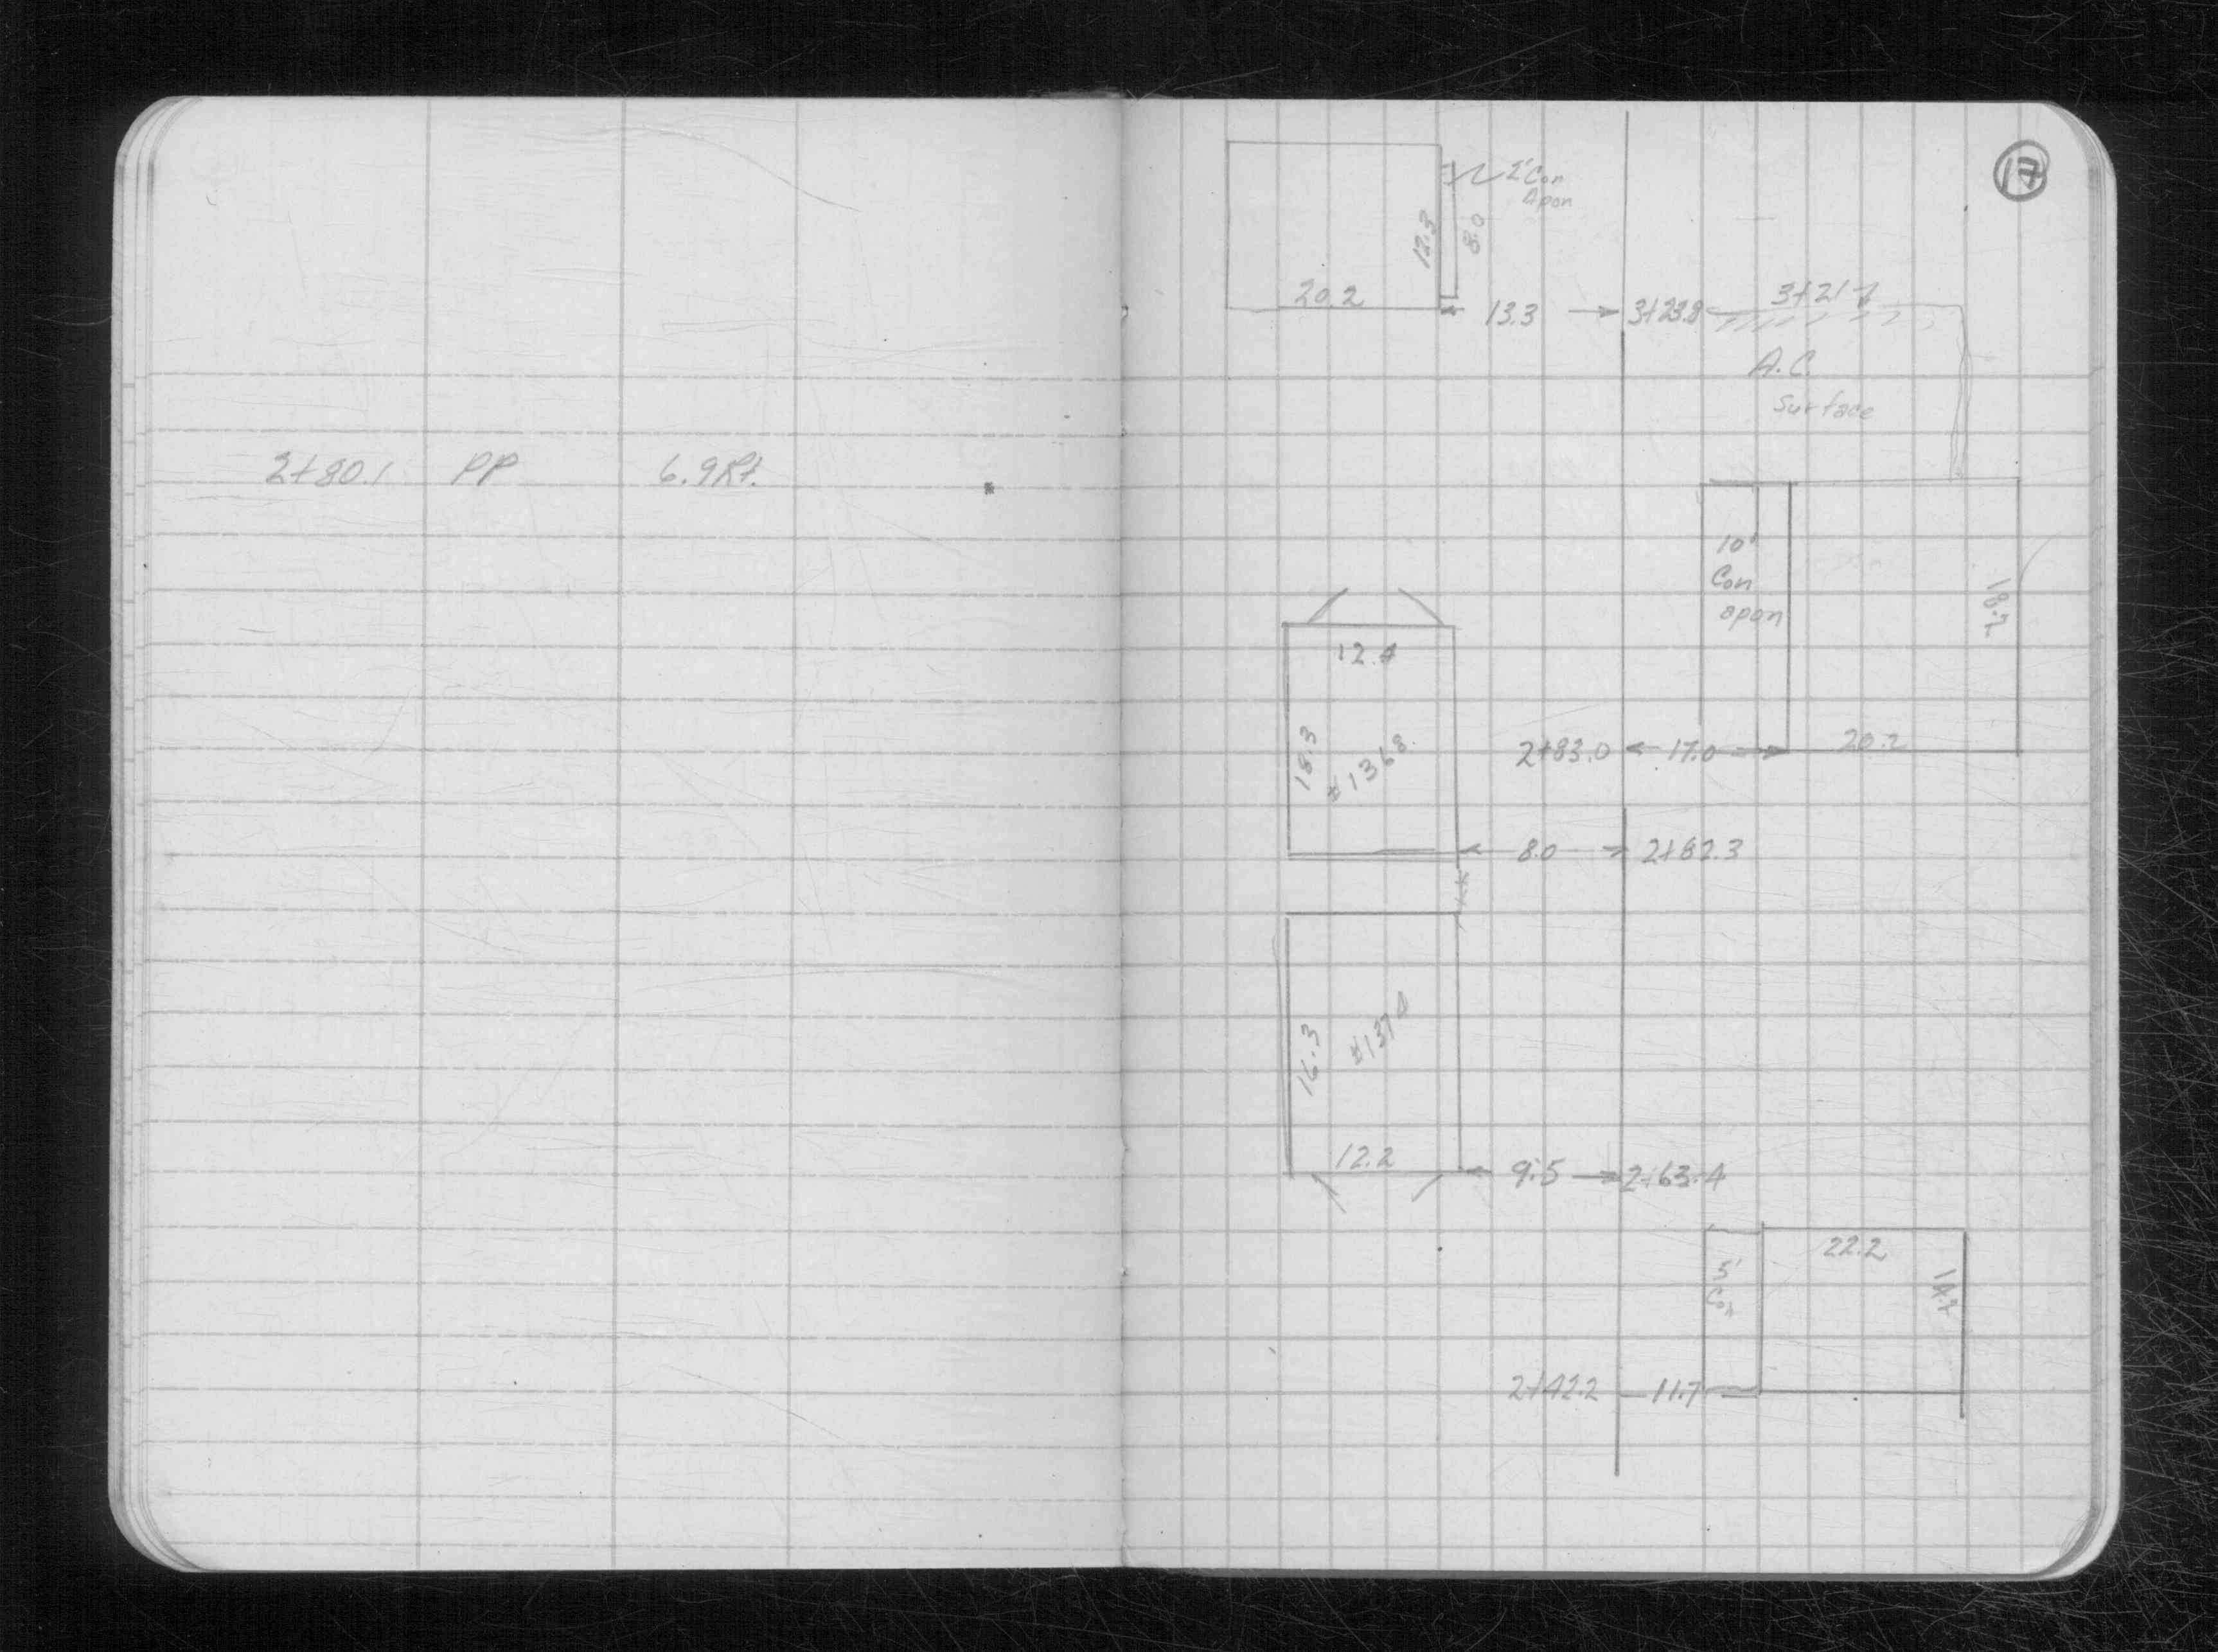 2+80.1 PP 6.9Rt.
17
2' Con
Apon
12.3
8.0
20.2
13.3 3+23.8
A.C.
Surface
10'
Con
apon
18.2
12.4
18.3
#1368
2+83.0 17.0 20.2
8.0 2+82.3
16.3
#1374
12.2
9.5 2+63.4
22.2
5'
Con
2+42.2 11.7